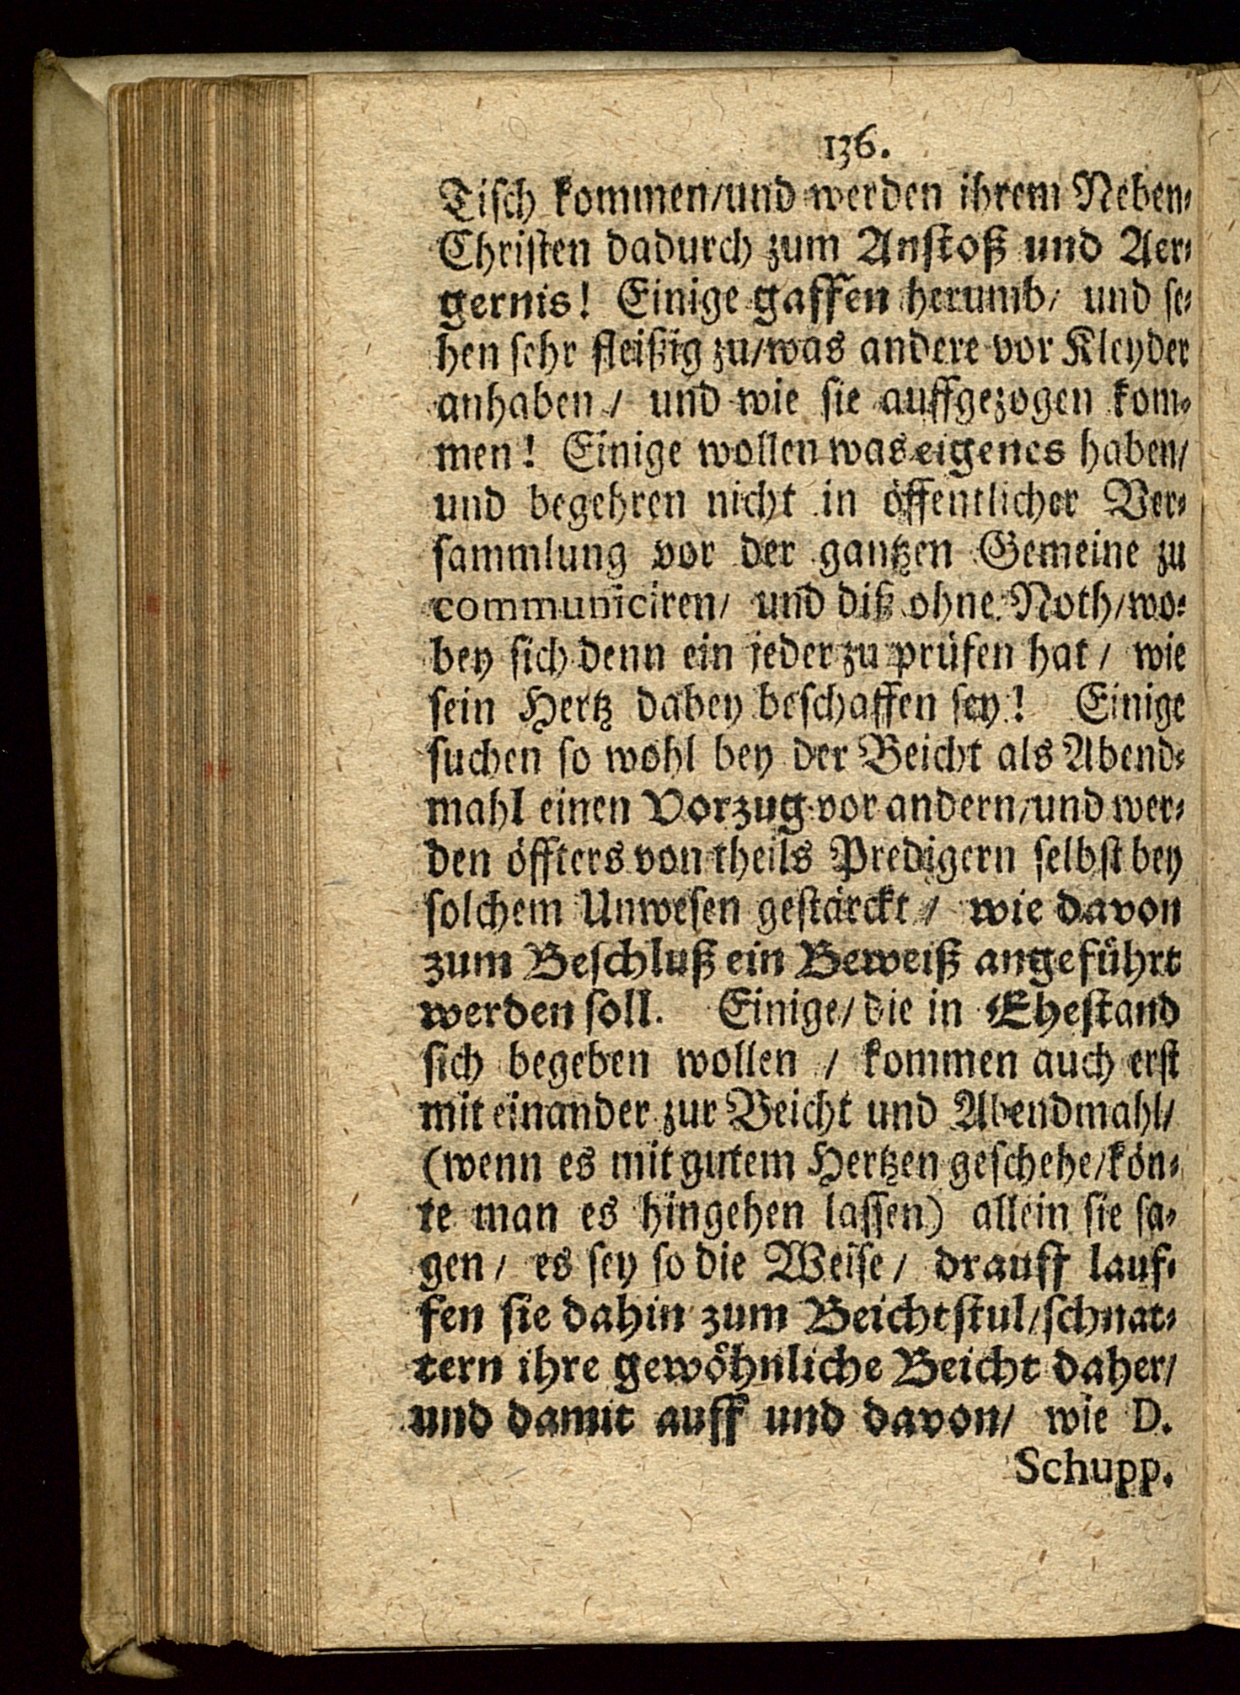 136.
Tisch kommen/und werden ihrem Neben-
Christen dadurch zum Anstoß und Aer-
gernis! Einige gaffen herumb/ und se-
hen sehr fleißig zu/was andere vor Kleyder
anhaben / und wie sie auffgezogen kom-
men! Einige wollen was eigenes haben/
und begehren nicht in öffentlicher Ver-
sammlung vor der gantzen Gemeine zu
communiciren/ und diß ohne Noth/wo-
bey sich denn ein jeder zu prüfen hat / wie
sein Hertz dabey beschaffen sey! Einige
suchen so wohl bey der Beicht als Abend-
mahl einen Vorzug vor andern/und wer-
den öffters von theils Predigern selbst bey
solchem Unwesen gestärckt / wie davon
zum Beschluß ein Beweiß angeführt
werden soll. Einige/ die in Ehestand
sich begeben wollen / kommen auch erst
mit einander zur Beicht und Abendmahl/
(wenn es mit gutem Hertzen geschehe/kön-
te man es hingehen lassen) allein sie sa-
gen / es sey so die Weise / drauff lauf-
fen sie dahin zum Beichtstul/schnat-
tern ihre gewöhnliche Beicht daher/
und damit auff und davon/ wie D.
Schupp.